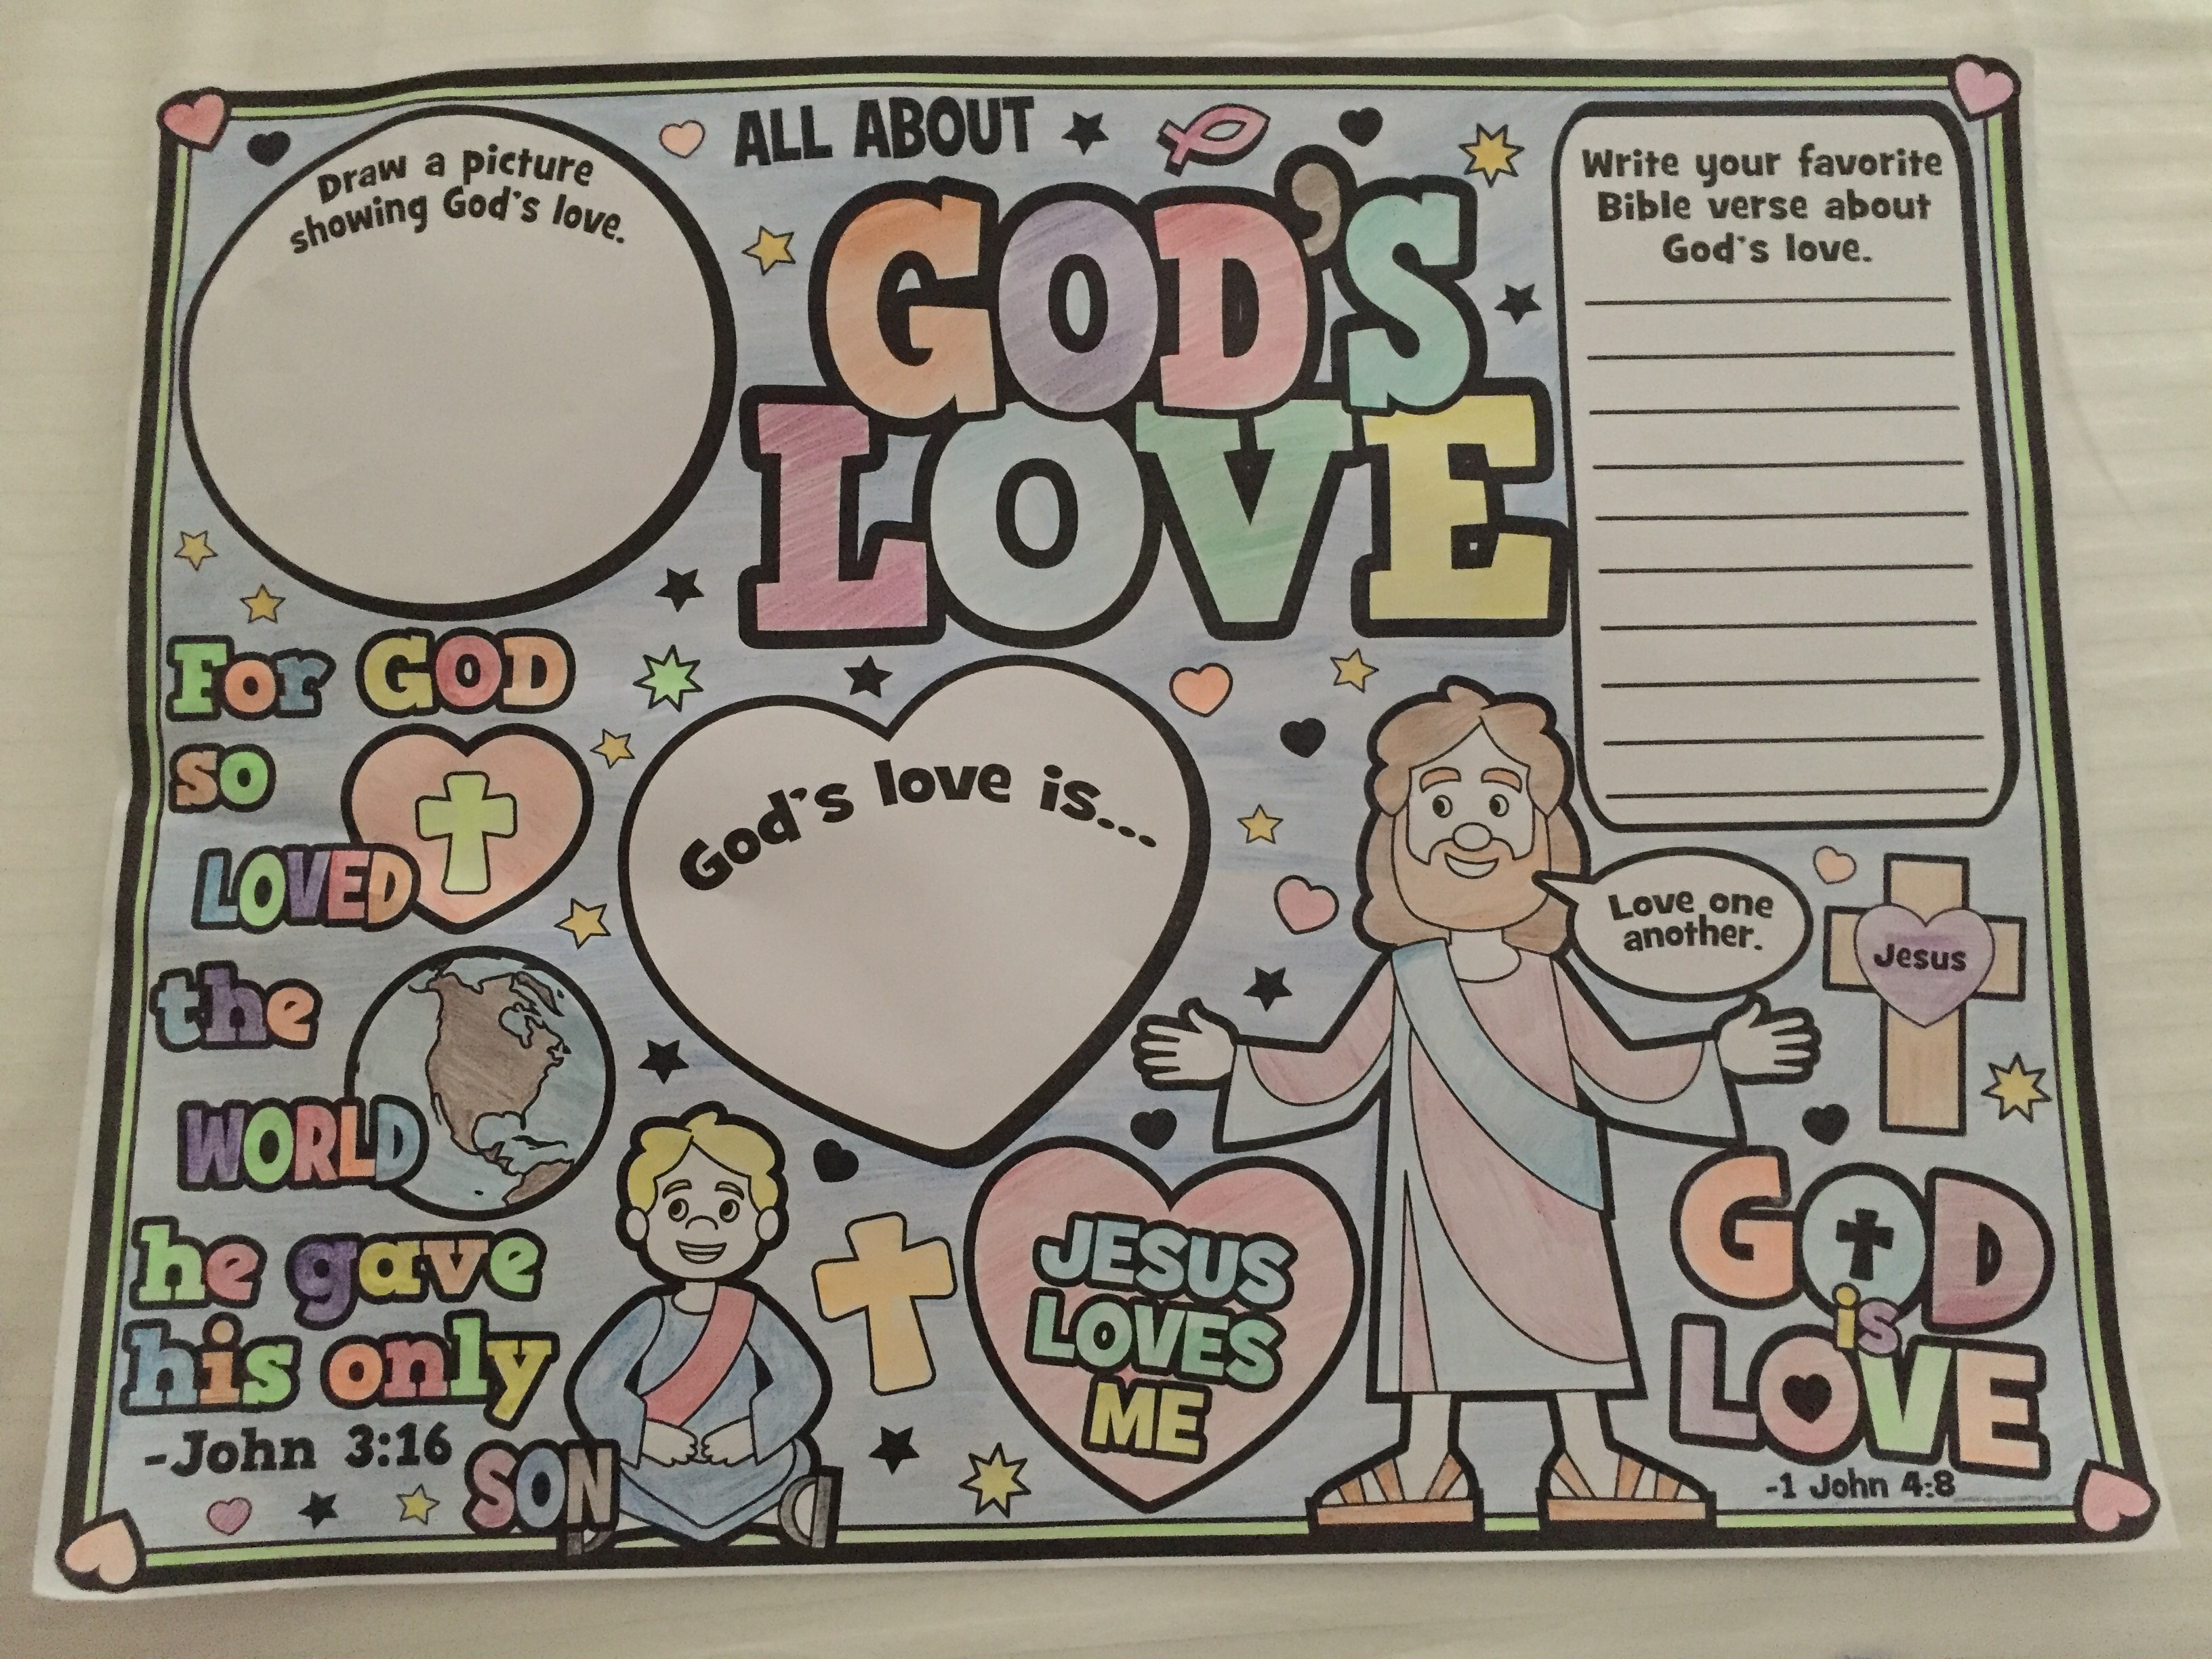 ALL ABOUT
GOD'S
LOVE
Draw a picture
showing God's love.
Write your favorite
Bible verse about
God's love.
For GOD
so
LOVED
the
WORLD
he gave
his only
SON
-John 3:16
God's love is...
Love one
another.
Jesus
JESUS
LOVES
ME
GOD
is
LOVE
-1 John 4:8